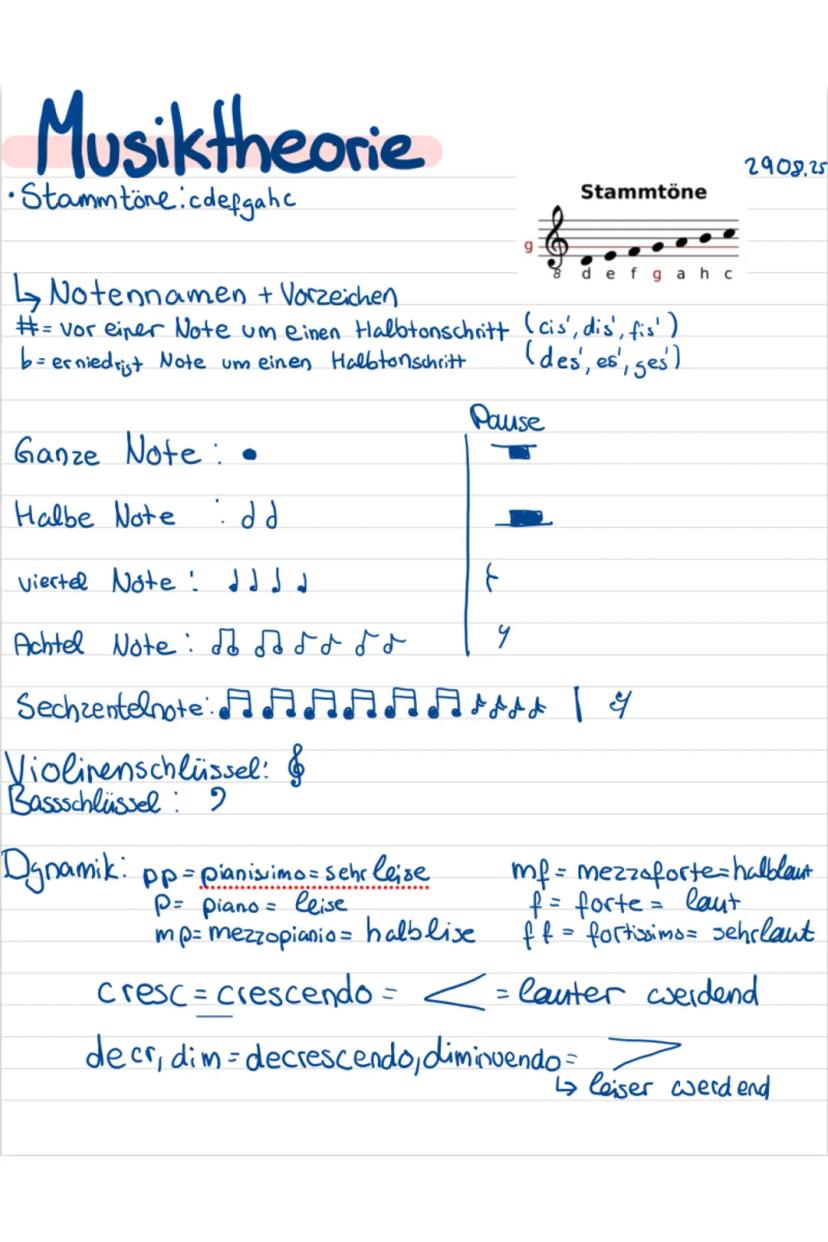 Musiktheorie
2908.25
• Stammtöne: cdefgahc
Stammtöne
g
8 d e f g a h c
↳ Notennamen + Vorzeichen
# = vor einer Note um einen Halbtonschritt (cis', dis', fis')
b = erniedrigt Note um einen Halbtonschritt (des', es', ges')
Pause
Ganze Note :
Halbe Note :
viertel Note :
Achtel Note :
Sechzentelnote:
Violinenschlüssel: 𝄞
Bassschlüssel :
Dynamik: pp = pianissimo = sehr leise mf = mezzoforte = halblaut
p = piano = leise f = forte = laut
mp = mezzopianio = halblise ff = fortissimo = sehr laut
cresc = crescendo = < = lauter werdend
decr, dim = decrescendo, diminuendo = >
↳ leiser werdend